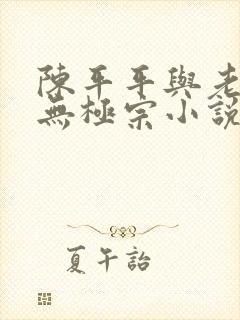 陳平平與老
無極宗小說
夏午詒